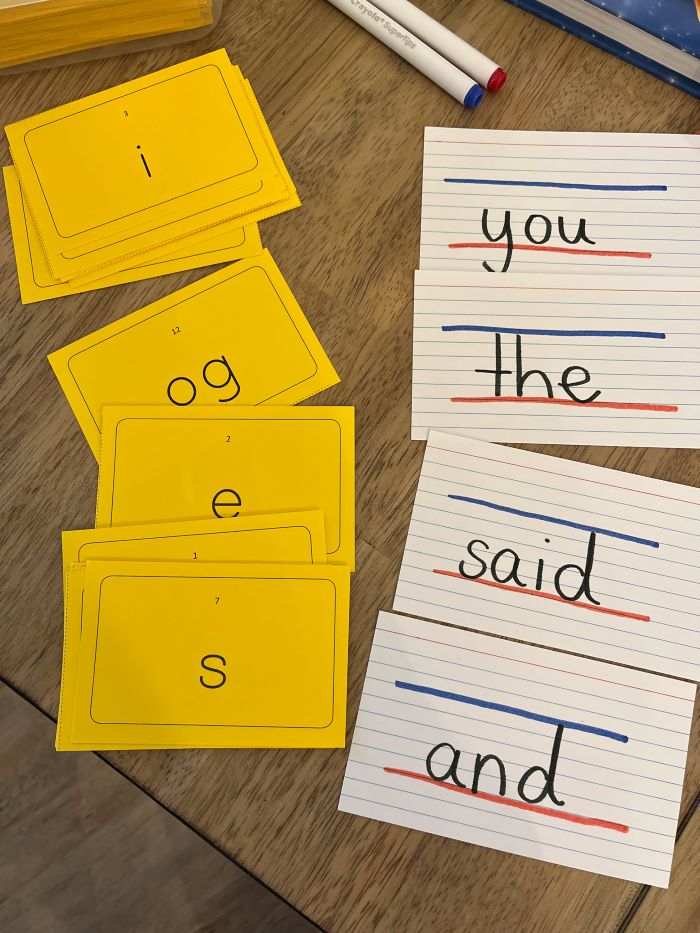 Crayola® SuperTips
3
i
12
og
2
e
1
7
s
you
the
said
and